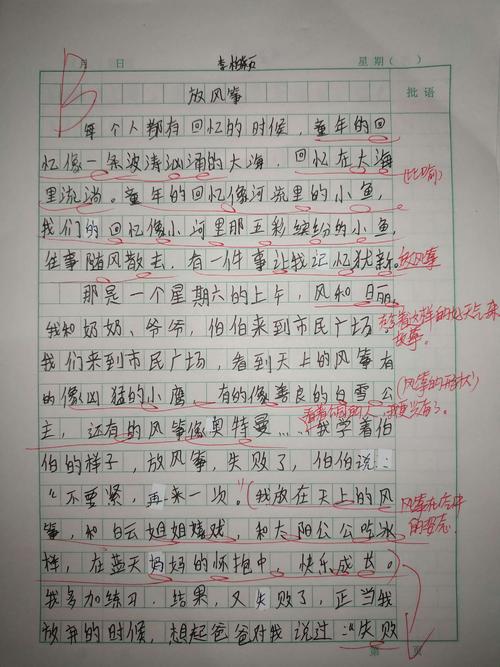 月 日 星期( )
批语
放风筝
每个人都有回忆的时候，童年的回
忆像一条波涛汹涌的大海，回忆在大海
里流淌。童年的回忆像河流里的小鱼，
我们的回忆像小河里那五彩缤纷的小鱼，
往事随风散去，有一件事让我记忆犹新。
那是一个星期六的上午，风和日丽。
我和奶奶、爷爷，伯伯来到市民广场，
我们来到市民广场，看到天上的风筝有
的像凶猛的小鹰，有的像善良的白雪公
主，还有的风筝像奥特曼……我学着伯
伯的样子，放风筝，失败了，伯伯说：
“不要紧，再来一次。”（我放在天上的风
筝，和白云姐姐嬉戏，和太阳公公吃冰
棒，在蓝天妈妈的怀抱中，快乐成长。）
我多加练习，结果，又失败了，正当我
放弃的时候，想起爸爸对我说过：“失败
B
(比喻)
放风筝
(风筝的形状)
第 页